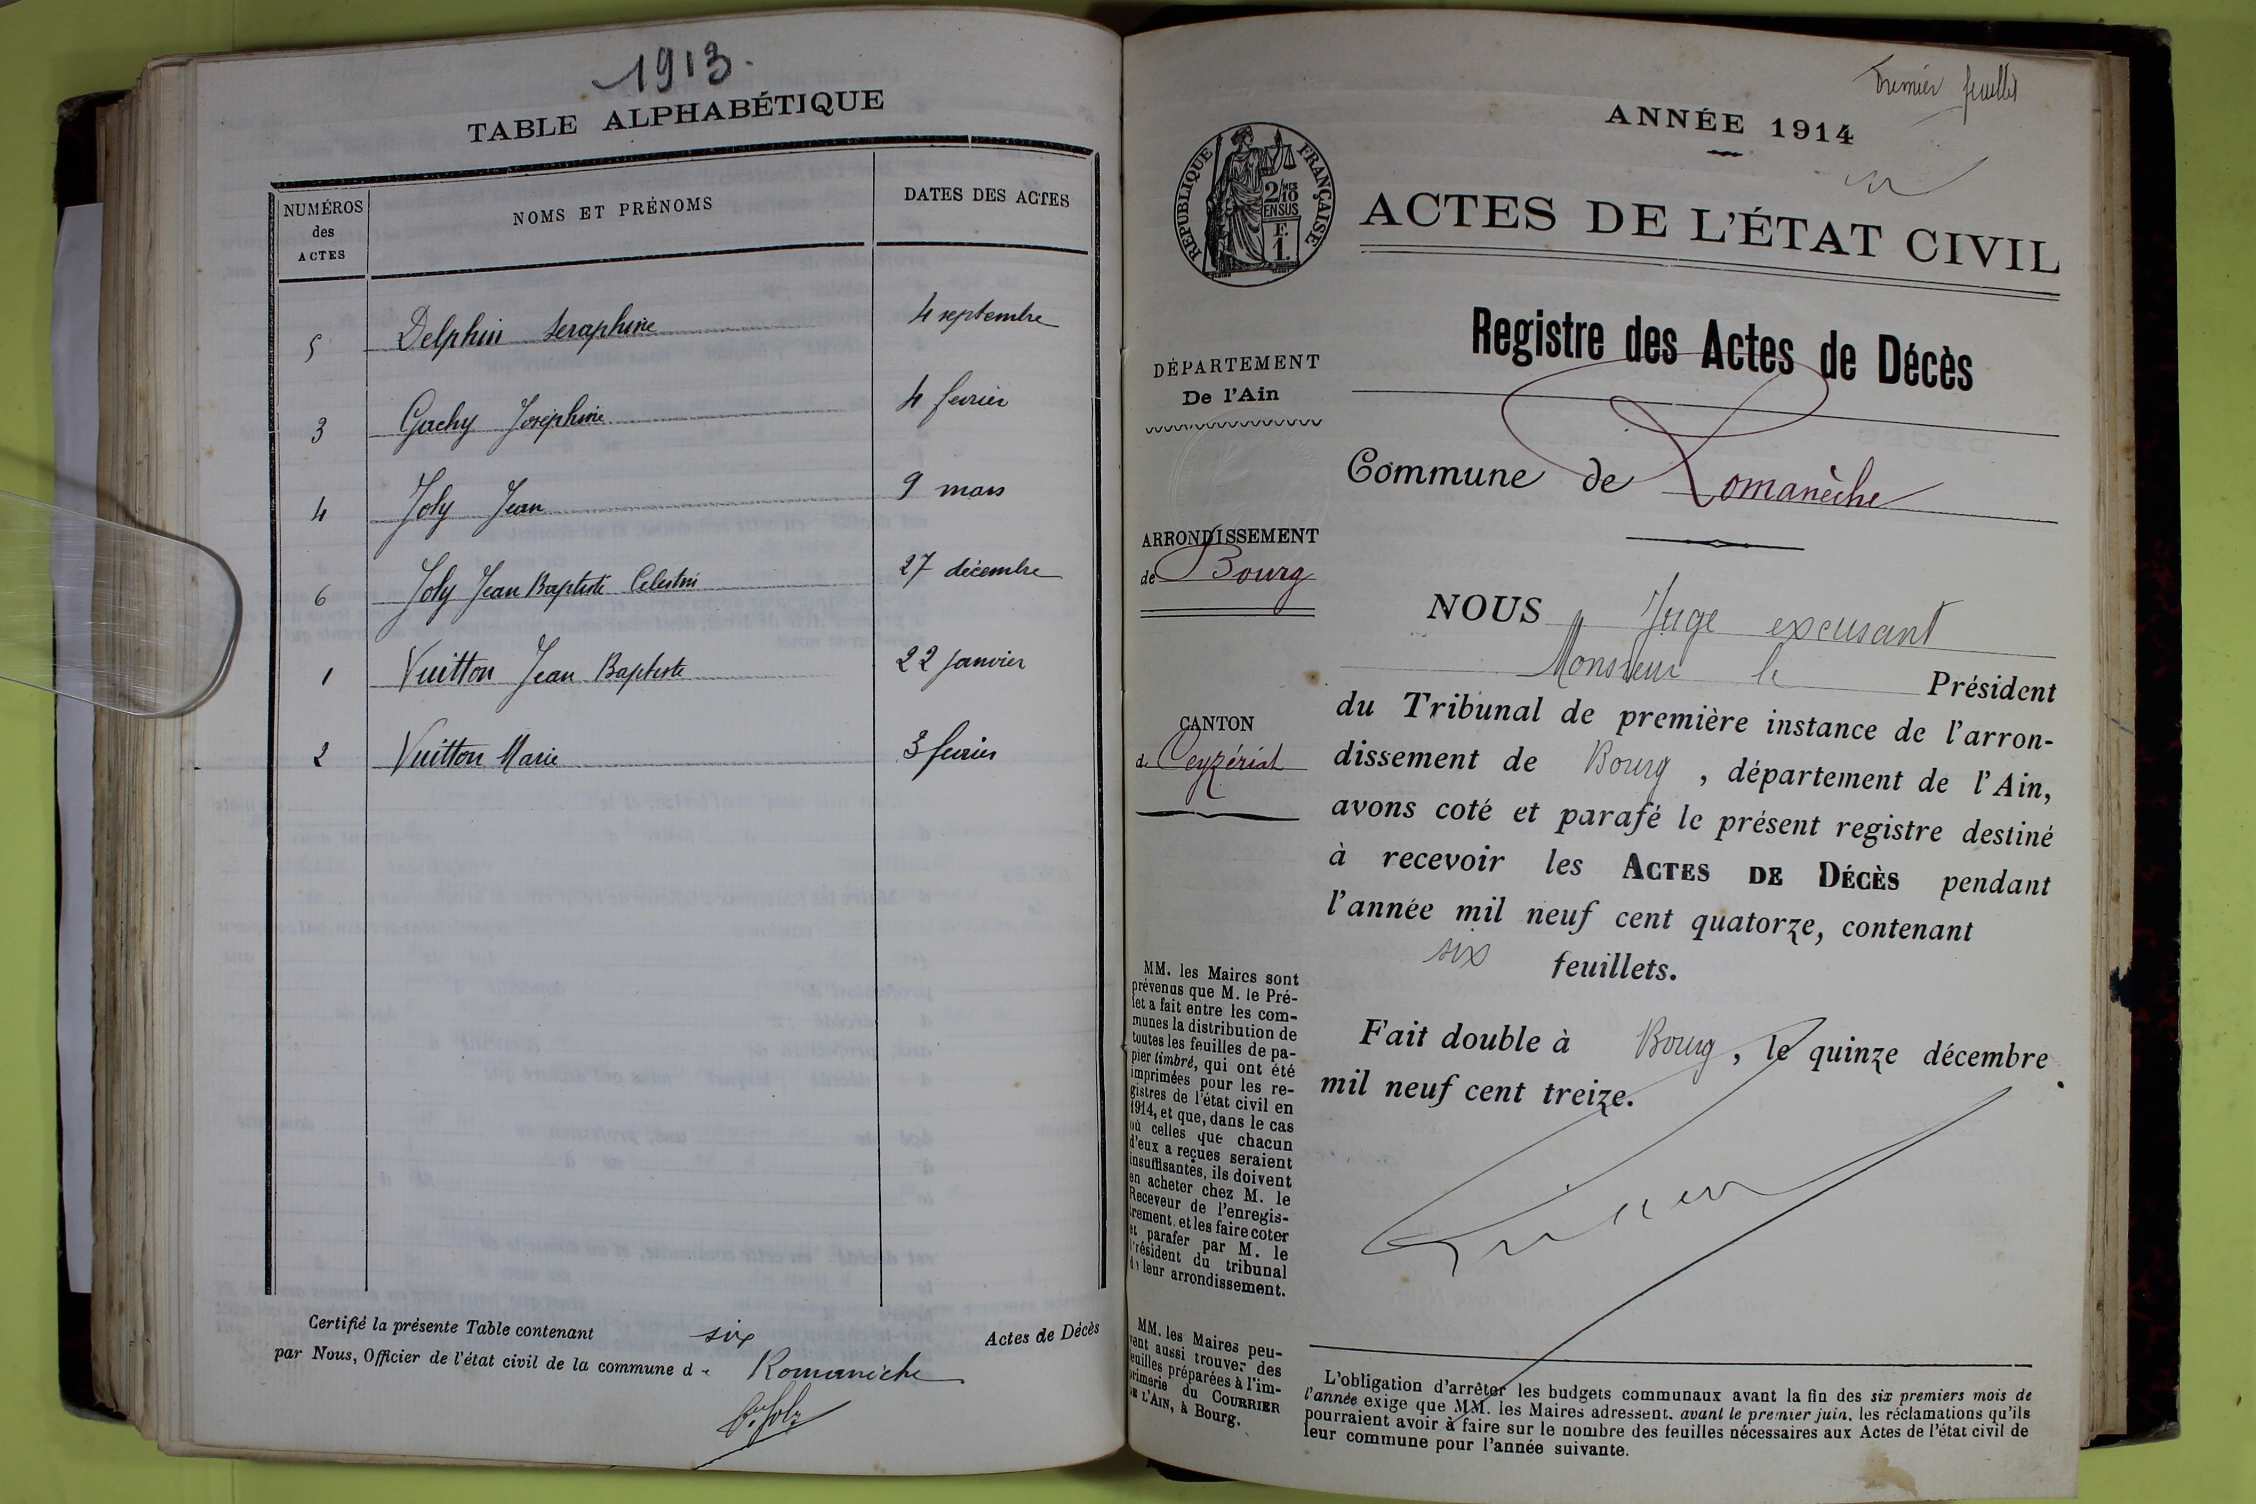 1913.
TABLE ALPHABÉTIQUE
NUMÉROS des ACTES NOMS ET PRÉNOMS DATES DES ACTES
5 Delphin Seraphine 4 septembre
3 Gachy Joséphine 4 fevrier
4 Joly Jean 9 mars
6 Joly Jean Baptiste Celestin 27 décembre
1 Vuitton Jean Baptiste 22 janvier
2 Vuitton Marie 3 fevrier
Certifié la présente Table contenant six Actes de Décès
par Nous, Officier de l'état civil de la commune de Romanèche
Joly
Premier feuillet
ANNÉE 1914
RÉPUBLIQUE FRANÇAISE
2/10 MES
EN SUS
F.
1.
ACTES DE L'ÉTAT CIVIL
Registre des Actes de Décès
DÉPARTEMENT
De l'Ain
Commune de Romanèche
ARRONDISSEMENT
de Bourg
CANTON
de Ceyzériat
NOUS Juge excusant
Monsieur le Président
du Tribunal de première instance de l'arron-
dissement de Bourg, département de l'Ain,
avons coté et parafé le présent registre destiné
à recevoir les ACTES DE DÉCÈS pendant
l'année mil neuf cent quatorze, contenant
six feuillets.
Fait double à Bourg, le quinze décembre
mil neuf cent treize.
MM. les Maires sont
prévenus que M. le Pré-
fet a fait entre les com-
munes la distribution de
toutes les feuilles de pa-
pier timbré, qui ont été
imprimées pour les re-
gistres de l'état civil en
1914, et que, dans le cas
où celles que chacun
d'eux a reçues seraient
insuffisantes, ils doivent
en acheter chez M. le
Receveur de l'enregis-
trement, et les faire coter
et parafer par M. le
Président du tribunal
de leur arrondissement.
MM. les Maires peu-
vent aussi trouver des
feuilles préparées à l'im-
primerie du COURRIER
DE L'AIN, à Bourg.
L'obligation d'arrêter les budgets communaux avant la fin des six premiers mois de
l'année exige que MM. les Maires adressent, avant le premier juin, les réclamations qu'ils
pourraient avoir à faire sur le nombre des feuilles nécessaires aux Actes de l'état civil de
leur commune pour l'année suivante.